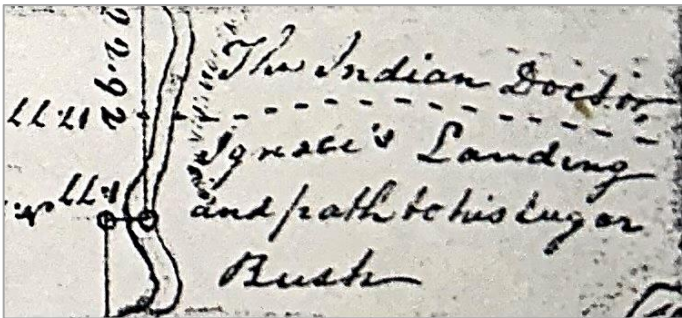 2292
The Indian Doctor,
Ignace's Landing
and path to his Sugar
Bush